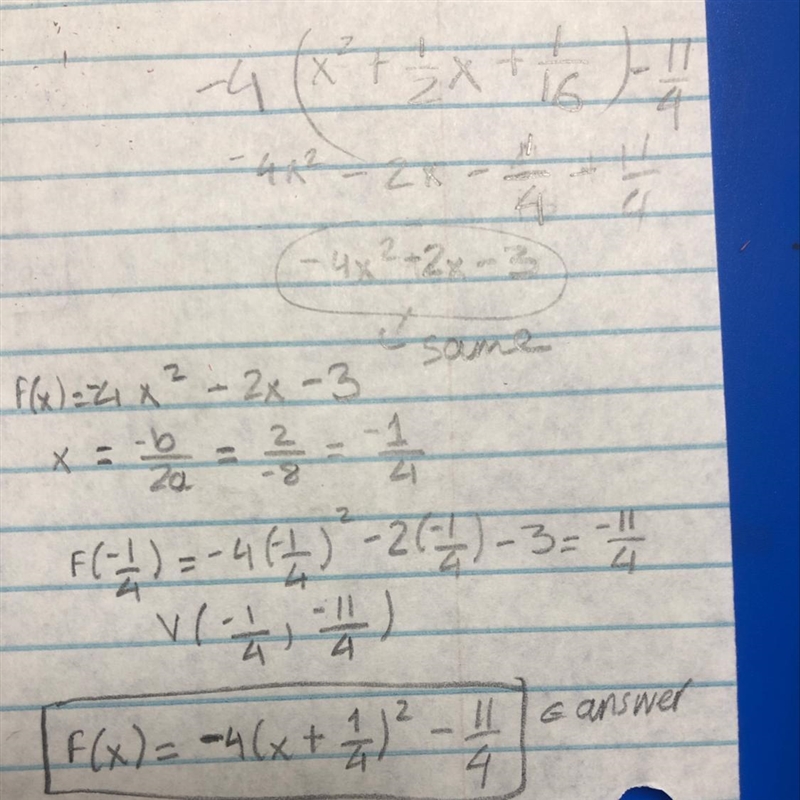 -4(x² + 1/2 x + 1/16) - 11/4
-4x² - 2x - 1/4 + 11/4
-4x² - 2x - 3
same
F(x) = -4x² - 2x - 3
x = -b/2a = 2/-8 = -1/4
F(-1/4) = -4(-1/4)² - 2(-1/4) - 3 = -11/4
V(-1/4, -11/4)
F(x) = -4(x + 1/4)² - 11/4 = answer